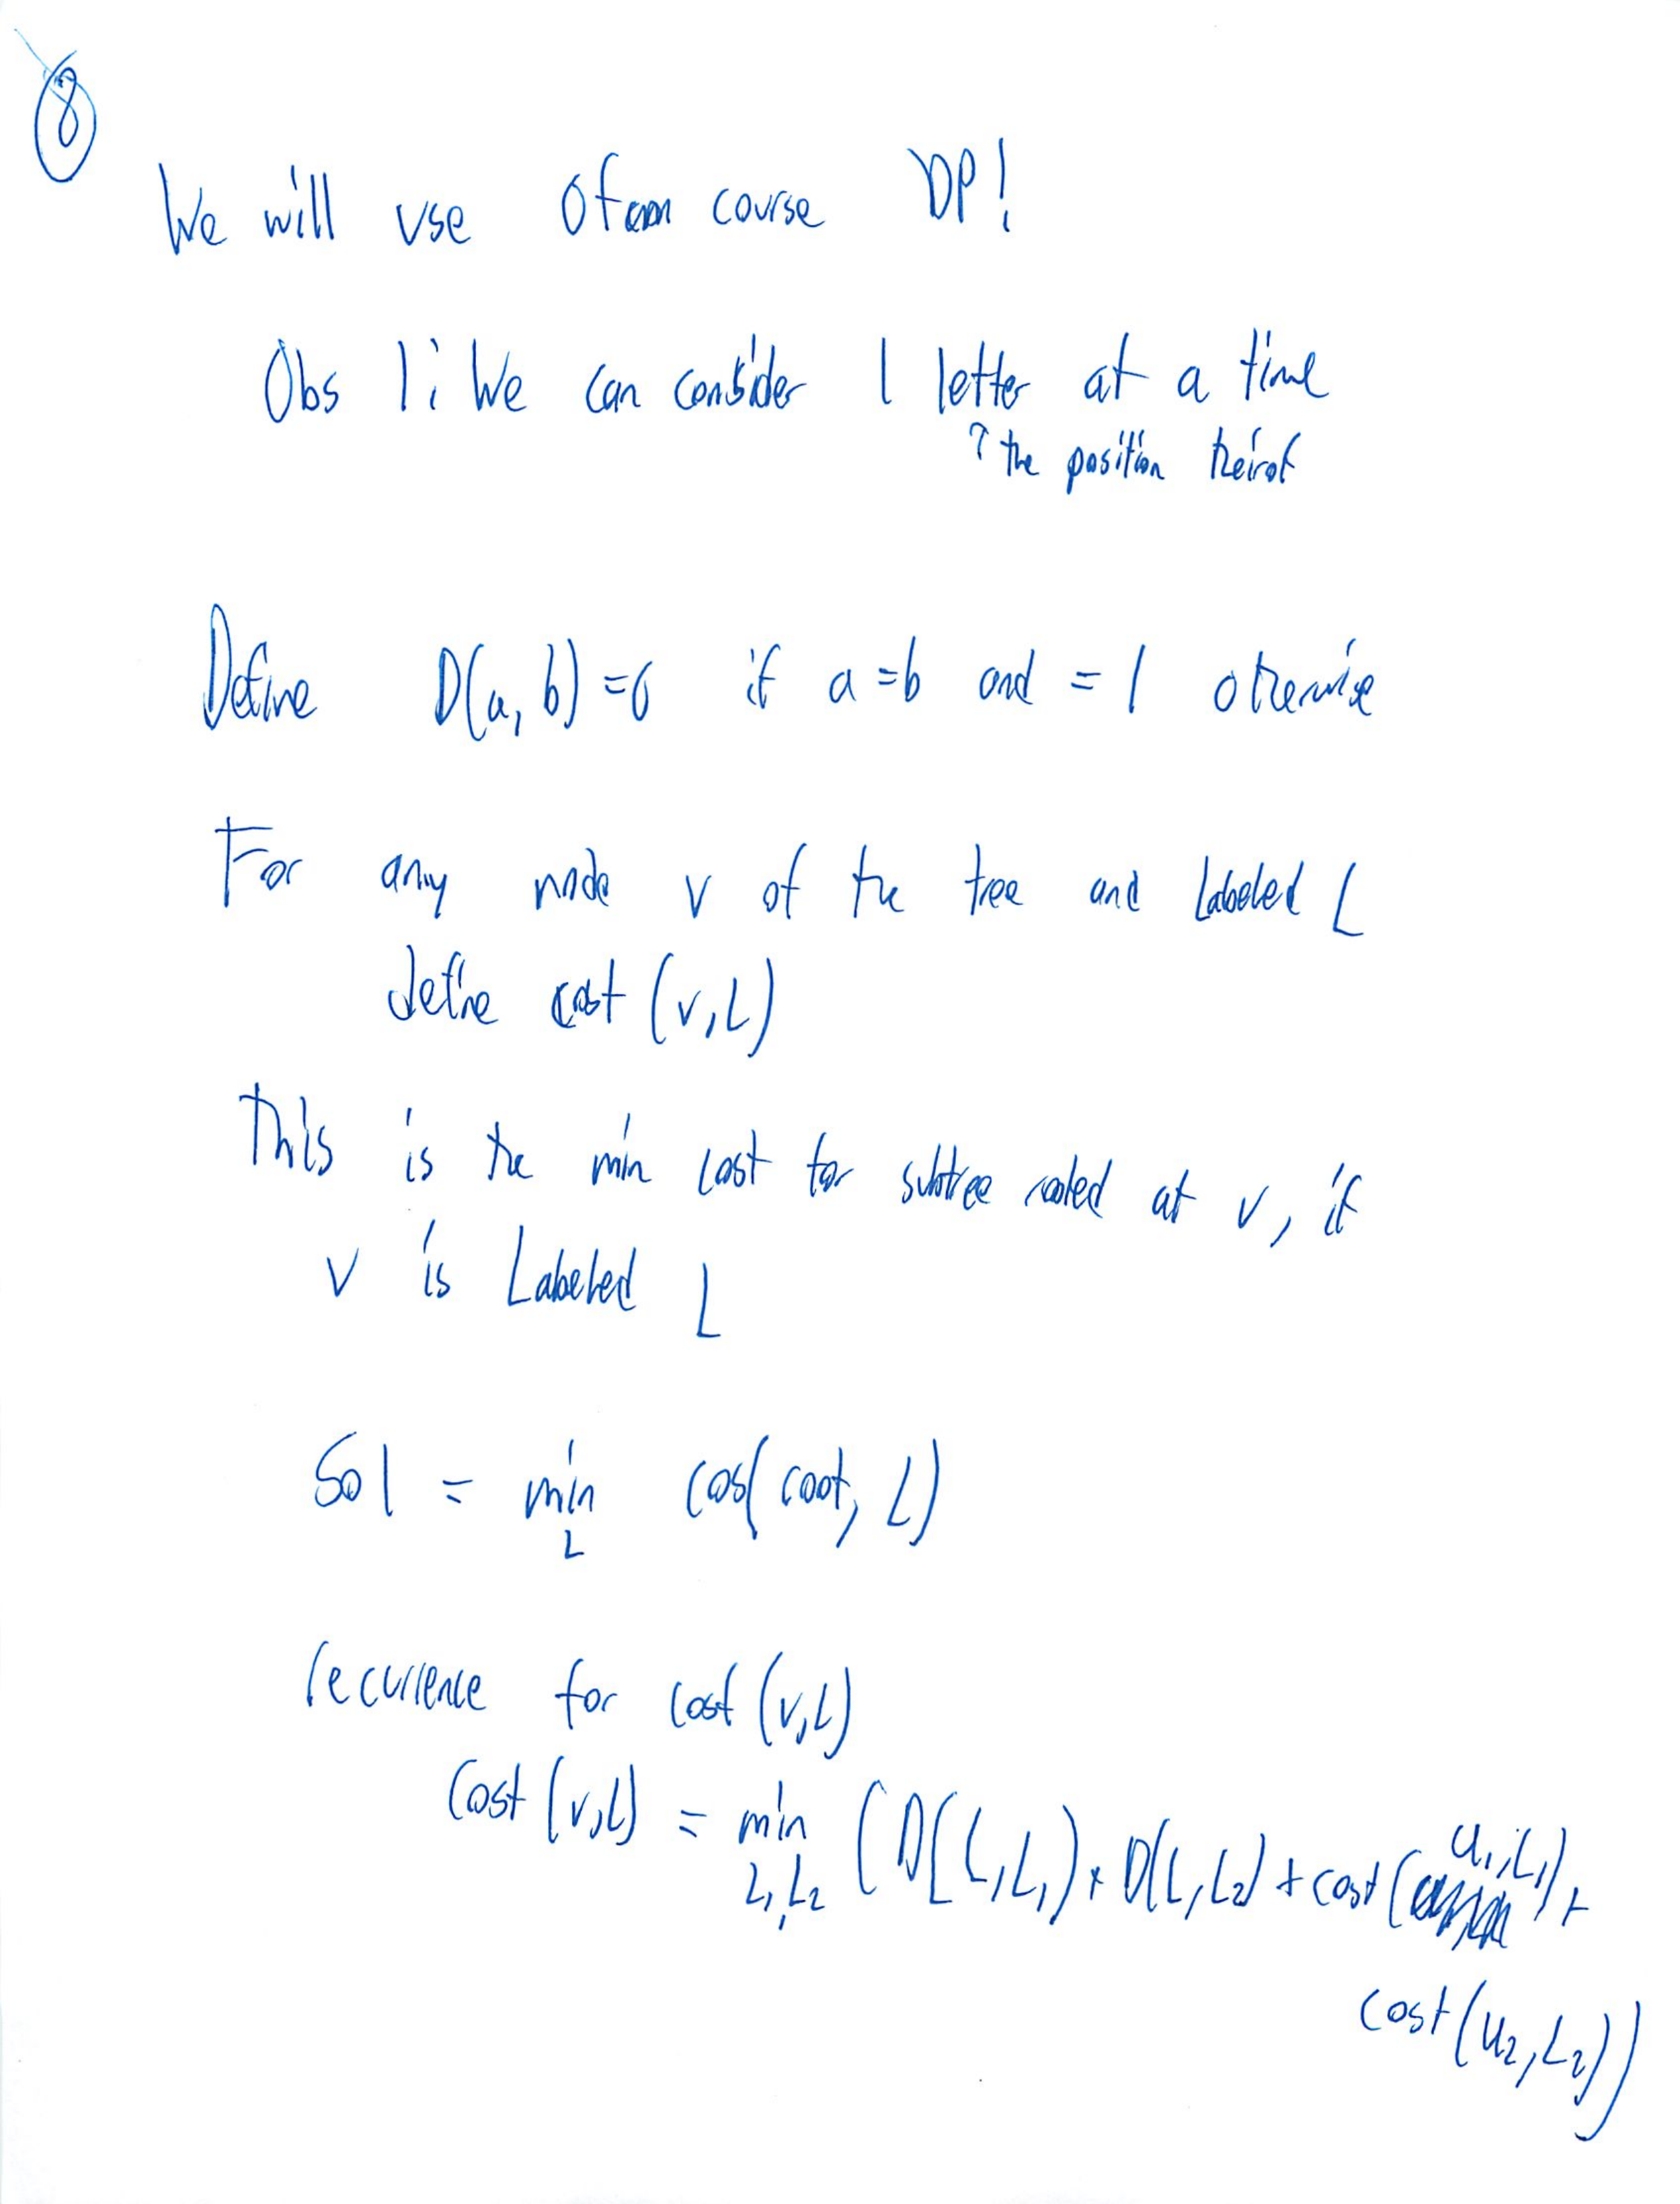 8
We will use of course DP!
Obs 1: We can consider 1 letter at a time
↑ the position theirof
Define D(a, b) = 0 if a = b and = 1 otherwise
For any node v of the tree and Labeled L
define cost (v, L)
This is the min cost for subtree rooted at v, if
v is Labeled L
Sol = min cos(root, L)
L
recurrence for cost (v, L)
Cost (v, L) = min (D(L, L₁) + D(L, L₂) + cost (u₁, L₁) +
L₁, L₂
cost (u₂, L₂))